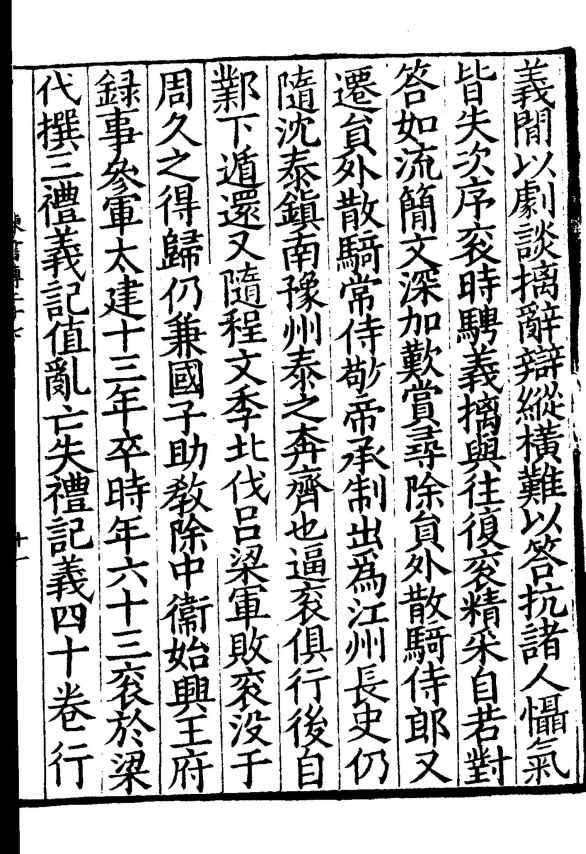 義間以劇談摛辭辯縱橫難以答抗諸人懾氣
皆失次序衮時騁義摛與往復衮精采自若對
答如流簡文深加歎賞尋除貟外散騎侍郎又
遷貟外散騎常侍敬帝承制出爲江州長史仍
隨沈泰鎭南豫州泰之奔齊也逼衮俱行後自
鄴下遁還又隨程文季北伐吕梁軍敗衮没于
周久之得歸仍兼國子助敎除中衞始興王府
録事參軍太建十三年卒時年六十三衮於梁
代撰三禮義記值亂亡失禮記義四十卷行